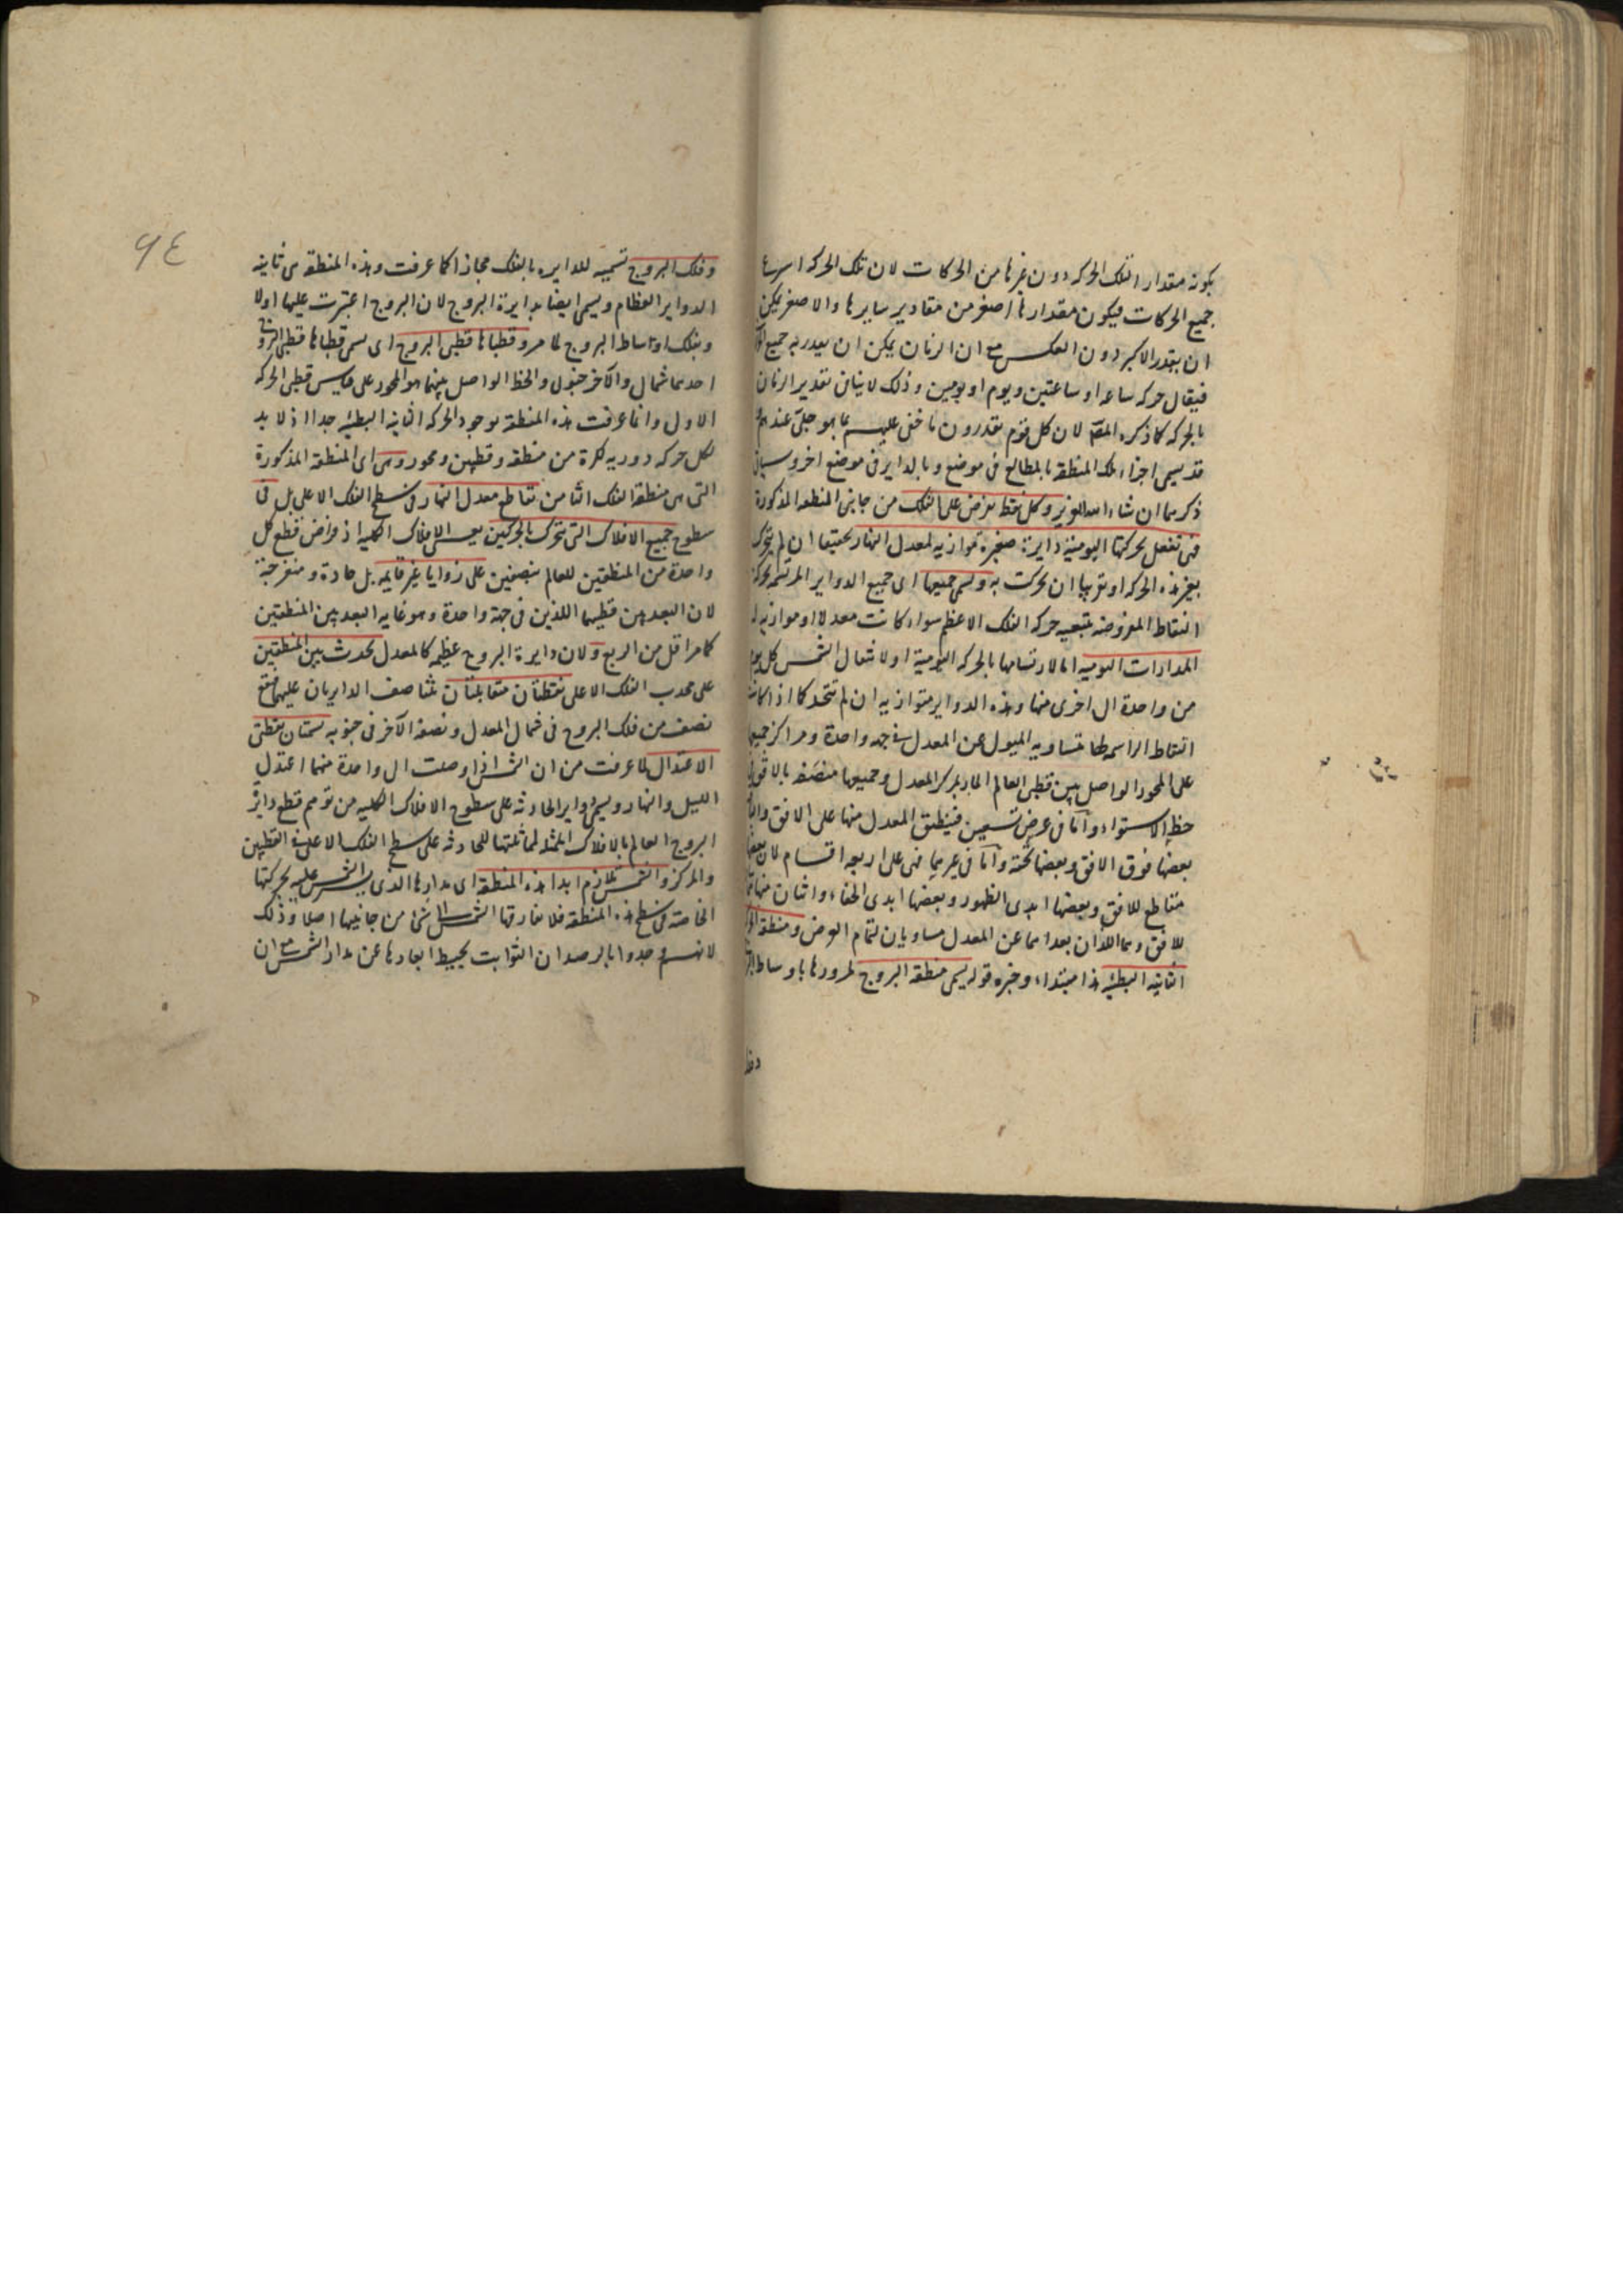 بكونه مقدارا لتلك الحركه دون غيرها من الحركات لان تلك الحركه اسرع
جميع الحركات فيكون مقدارها اصغر من مقادير سايرها والاصغر يمكن
ان يقدر الاكبر دون العكس مع ان الزمان يمكن ان يقدر به جميع
فيقال حركه ساعه او ساعتين ويوم او يومين وذلك لا ينافى تقدير الزمان
بالحركه كما ذكره لان كل قوم يقدرون ما خفى عليهم بما هو جلى عندهم
قد يسمى اجزاء تلك المنطقه بالمطالع فى موضع وبالداير فى موضع اخر وسياتى
ذكرهما ان شاء الله العزيز وكل نقط تفرض على الفلك من جانبى المنطقه المذكورة
فهى تفعل بحركتها اليومية دايرة صغيره موازيه لمعدل النهار تحقيقا ان لم يتحرك
بغير هذه الحركه او تقريبا ان تحركت به ويسمى جميعها اى جميع الدواير المرتسمه بحركة
النقاط المفروضه بتبعيه حركه الفلك الاعظم سواء كانت معدلا او موازيه له
المدارات اليوميه اما لارتسامها بالحركه اليومية او لانتقال الشمس كل يوم
من واحدة الى اخرى منها وهذه الدواير متوازيه ان لم تتحد كما اذا كانت
النقاط الراسمه لها متساويه الميول عن المعدل فى جهه واحدة ومراكز جميعها
على المحور الواصل بين قطبى العالم المار بمركز المعدل وجميعها منصفه بالافق فى
خط الاستواء واما فى عرض تسعين فينطبق المعدل منها على الافق
بعضها فوق الافق وبعضها تحته واما فى غيرهما فهى على اربعه اقسام لان بعضها
متقاطع للافق وبعضها ابدى الظهور وبعضها ابدى الخفاء واثنان منها
للافق وهما اللذان بعداهما عن المعدل مساويان لتمام العرض ومنطقه
الثانيه البطيئه هذا مبتداء وخبره قوله يسمى منطقه البروج لمرورها باوساط
وفلك البروج تسميه للدايره بالفلك مجازا كما عرفت وهذه المنطقه هى ثانيه
الدواير العظام ويسمى ايضا بدايرة البروج لان البروج اعتبرت عليها اولا
وبفلك اوساط البروج لما مر وقطباها قطبى البروج اى يسمى قطباها قطبى البروج
احدهما شمالى والآخر جنوبى والخط الواصل بينهما هو المحور على قياس قطبى الحركه
الاولى وانما عرفت هذه المنطقه بوجود الحركه الثانيه البطيئه جدا اذ لا بد
لكل حركه دوريه لكرة من منطقه وقطبين ومحور وهى اى المنطقه المذكورة
التى هى منطقه الفلك الثامن تقاطع معدل النهار فى سطح الفلك الاعلى بل فى
سطوح جميع الافلاك التى تتحرك بالحركتين يعنى الافلاك الكليه اذ فرض قطع كل
واحدة من المنطقتين للعالم بنصفين على زوايا غير قايمه بل حادة ومنفرجة
لان البعد بين قطبيهما اللذين فى جهة واحدة وهو غايه البعد بين المنطقتين
كما مر اقل من الربع ولان دايرة البروج عظيمه كالمعدل يحدث بين المنطقتين
على محدب الفلك الاعلى نقطتان متقابلتان تتناصف الدايرتان عليهما فيقع
نصف من فلك البروج فى شمال المعدل ونصفه الآخر فى جنوبه يسميان نقطتى
الاعتدال لما عرفت من ان الشمس اذا وصلت الى واحدة منهما اعتدل
الليل والنهار ويسمى الدواير الحادثه على سطوح الافلاك الكليه من توهم قطع دايرة
البروج العالم بالافلاك الممثله لمماثلتها للحادثه على سطح الفلك الاعلى فى القطبين
والمركز والشمس تلازم ابدا هذه المنطقه اى مدارها الذى يسير الشمس عليه بحركتها
الخاصه فى سطح هذه المنطقه فلا تفارقها الشمس الى شئ من جانبيها اصلا وذلك
لانهم وجدوا بالرصد ان الثوابت يحيط ابعادها عن مدار الشمس مع ان